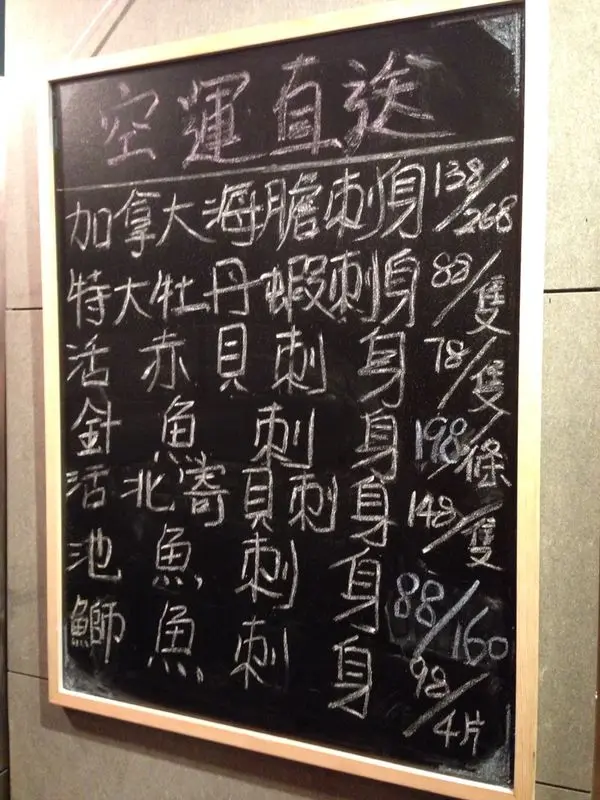 空運直送
加拿大海膽刺身138/268
特大牡丹蝦刺身88/隻
活赤貝刺身78/隻
針魚刺身198/條
活北寄貝刺身148/隻
池魚刺身88/160
鰤魚刺身98/4片